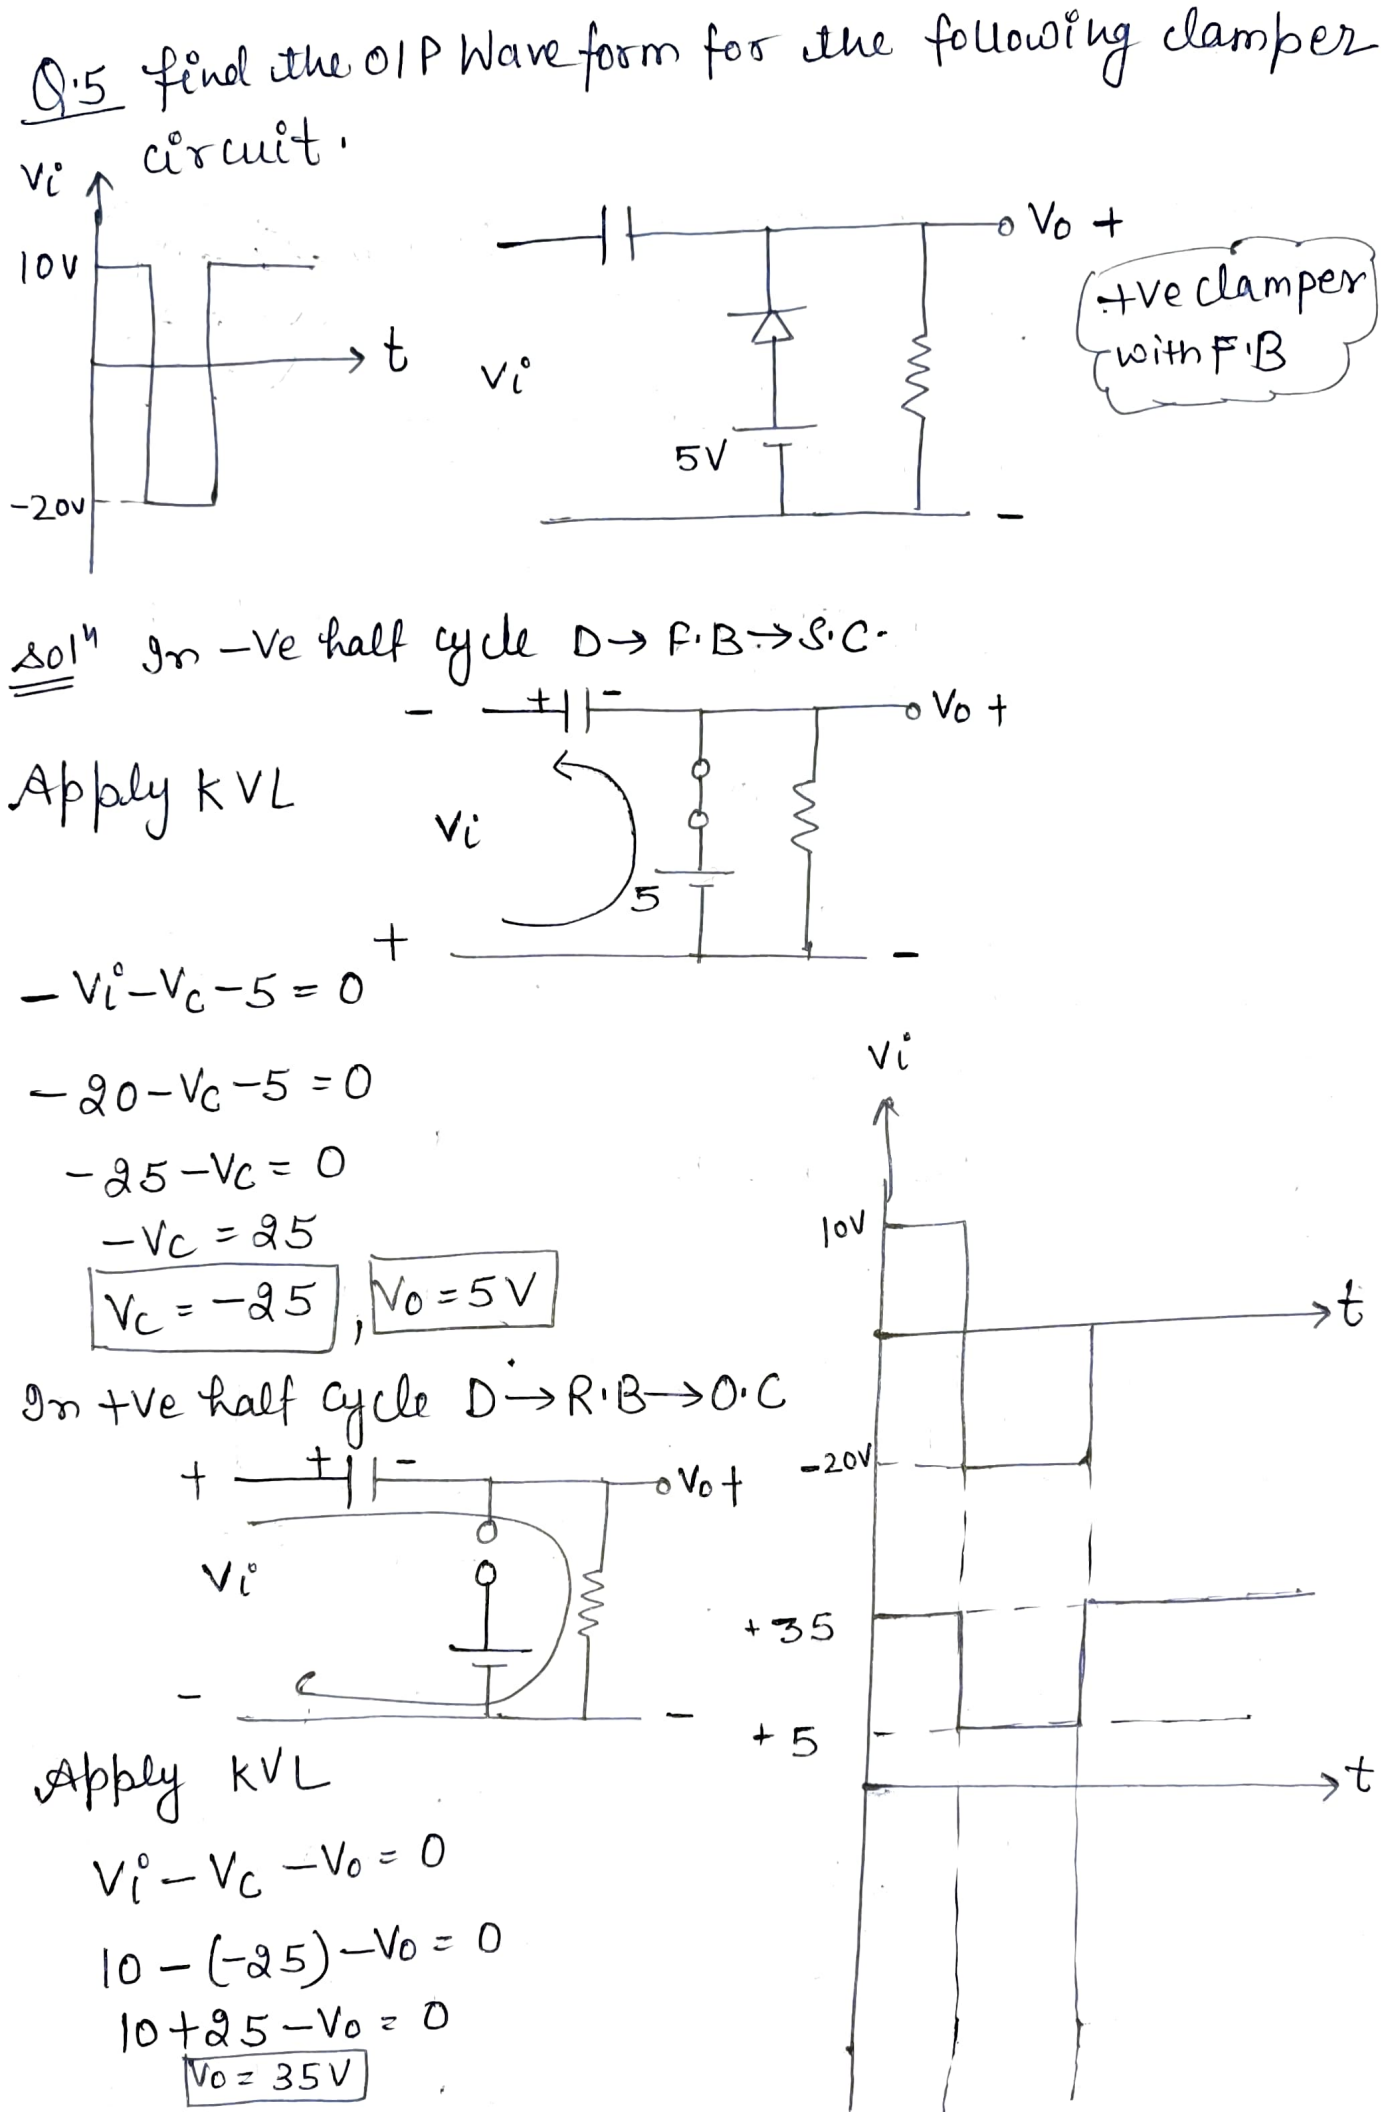 Q.5 find the O/P Wave form for the following clamper
circuit.
Vi
10V
t
-20V
Vi
5V
Vo +
-
+ve clamper
with F.B
Solⁿ In -Ve half cycle D→ F.B→S.C.
- + - Vo +
Apply KVL
Vi
5
+
-
- Vi - Vc - 5 = 0
- 20 - Vc - 5 = 0
- 25 - Vc = 0
- Vc = 25
Vc = -25 , Vo = 5V
In +Ve half cycle D→R.B→O.C
+ + - Vo +
Vi
- -
Apply KVL
Vi - Vc - Vo = 0
10 - (-25) - Vo = 0
10 + 25 - Vo = 0
Vo = 35V
Vi
10V
t
-20V
+35
+5
t